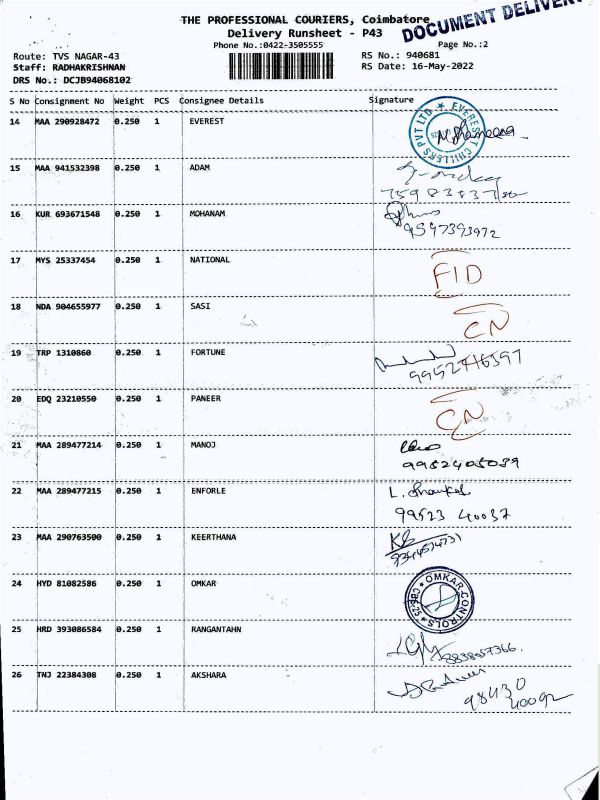 THE PROFESSIONAL COURIERS, Coimbatore
DOCUMENT DELIVERY
Delivery Runsheet - P43
Phone No.:0422-3505555
Page No.:2
Route: TVS NAGAR-43
RS No.: 940681
Staff: RADHAKRISHNAN
RS Date: 16-May-2022
DRS No.: DCJB94068102
S No Consignment No Weight PCS Consignee Details Signature
14 MAA 290928472 0.250 1 EVEREST
EVEREST CHILLERS PVT LTD
M. Shameena
15 MAA 941532398 0.250 1 ADAM
16 KUR 693671548 0.250 1 MOHANAM
9597393972
17 MYS 25337454 0.250 1 NATIONAL
FID
18 NDA 904655977 0.250 1 SASI
CN
19 TRP 1310860 0.250 1 FORTUNE
20 EDQ 23210550 0.250 1 PANEER
CN
21 MAA 289477214 0.250 1 MANOJ
9952405039
22 MAA 289477215 0.250 1 ENFORLE
L. Shankar
99523 40037
23 MAA 290763500 0.250 1 KEERTHANA
24 HYD 81082586 0.250 1 OMKAR
OMKAR CONTROLS CBE-25
25 HRD 393086584 0.250 1 RANGANTAHN
26 TNJ 22384308 0.250 1 AKSHARA
98430
40092